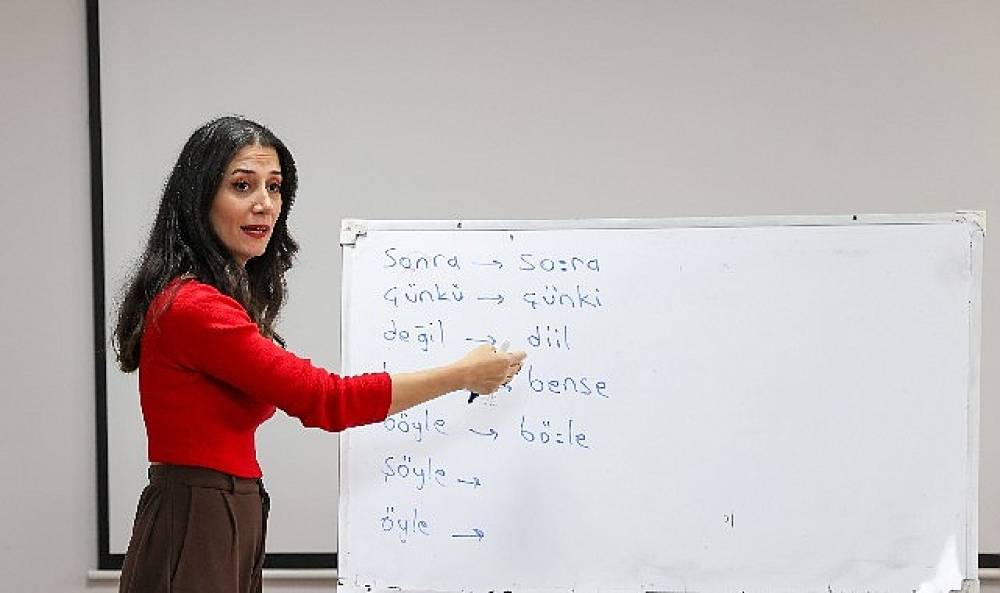 Sonra → so:ra
çünkü → çünki
değil → diil
→ bense
böyle → bö:le
Şöyle →
öyle →